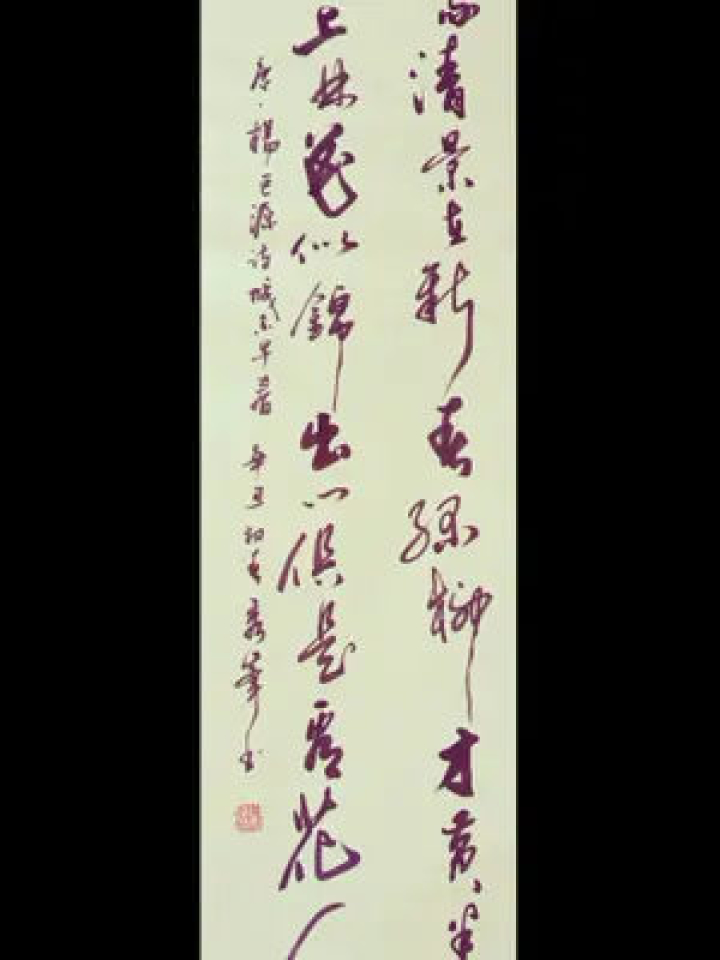 清景在新春绿柳才黄半
上林花似錦出门俱是看花人
唐·楊巨源诗城东早春 辛丑初春 书